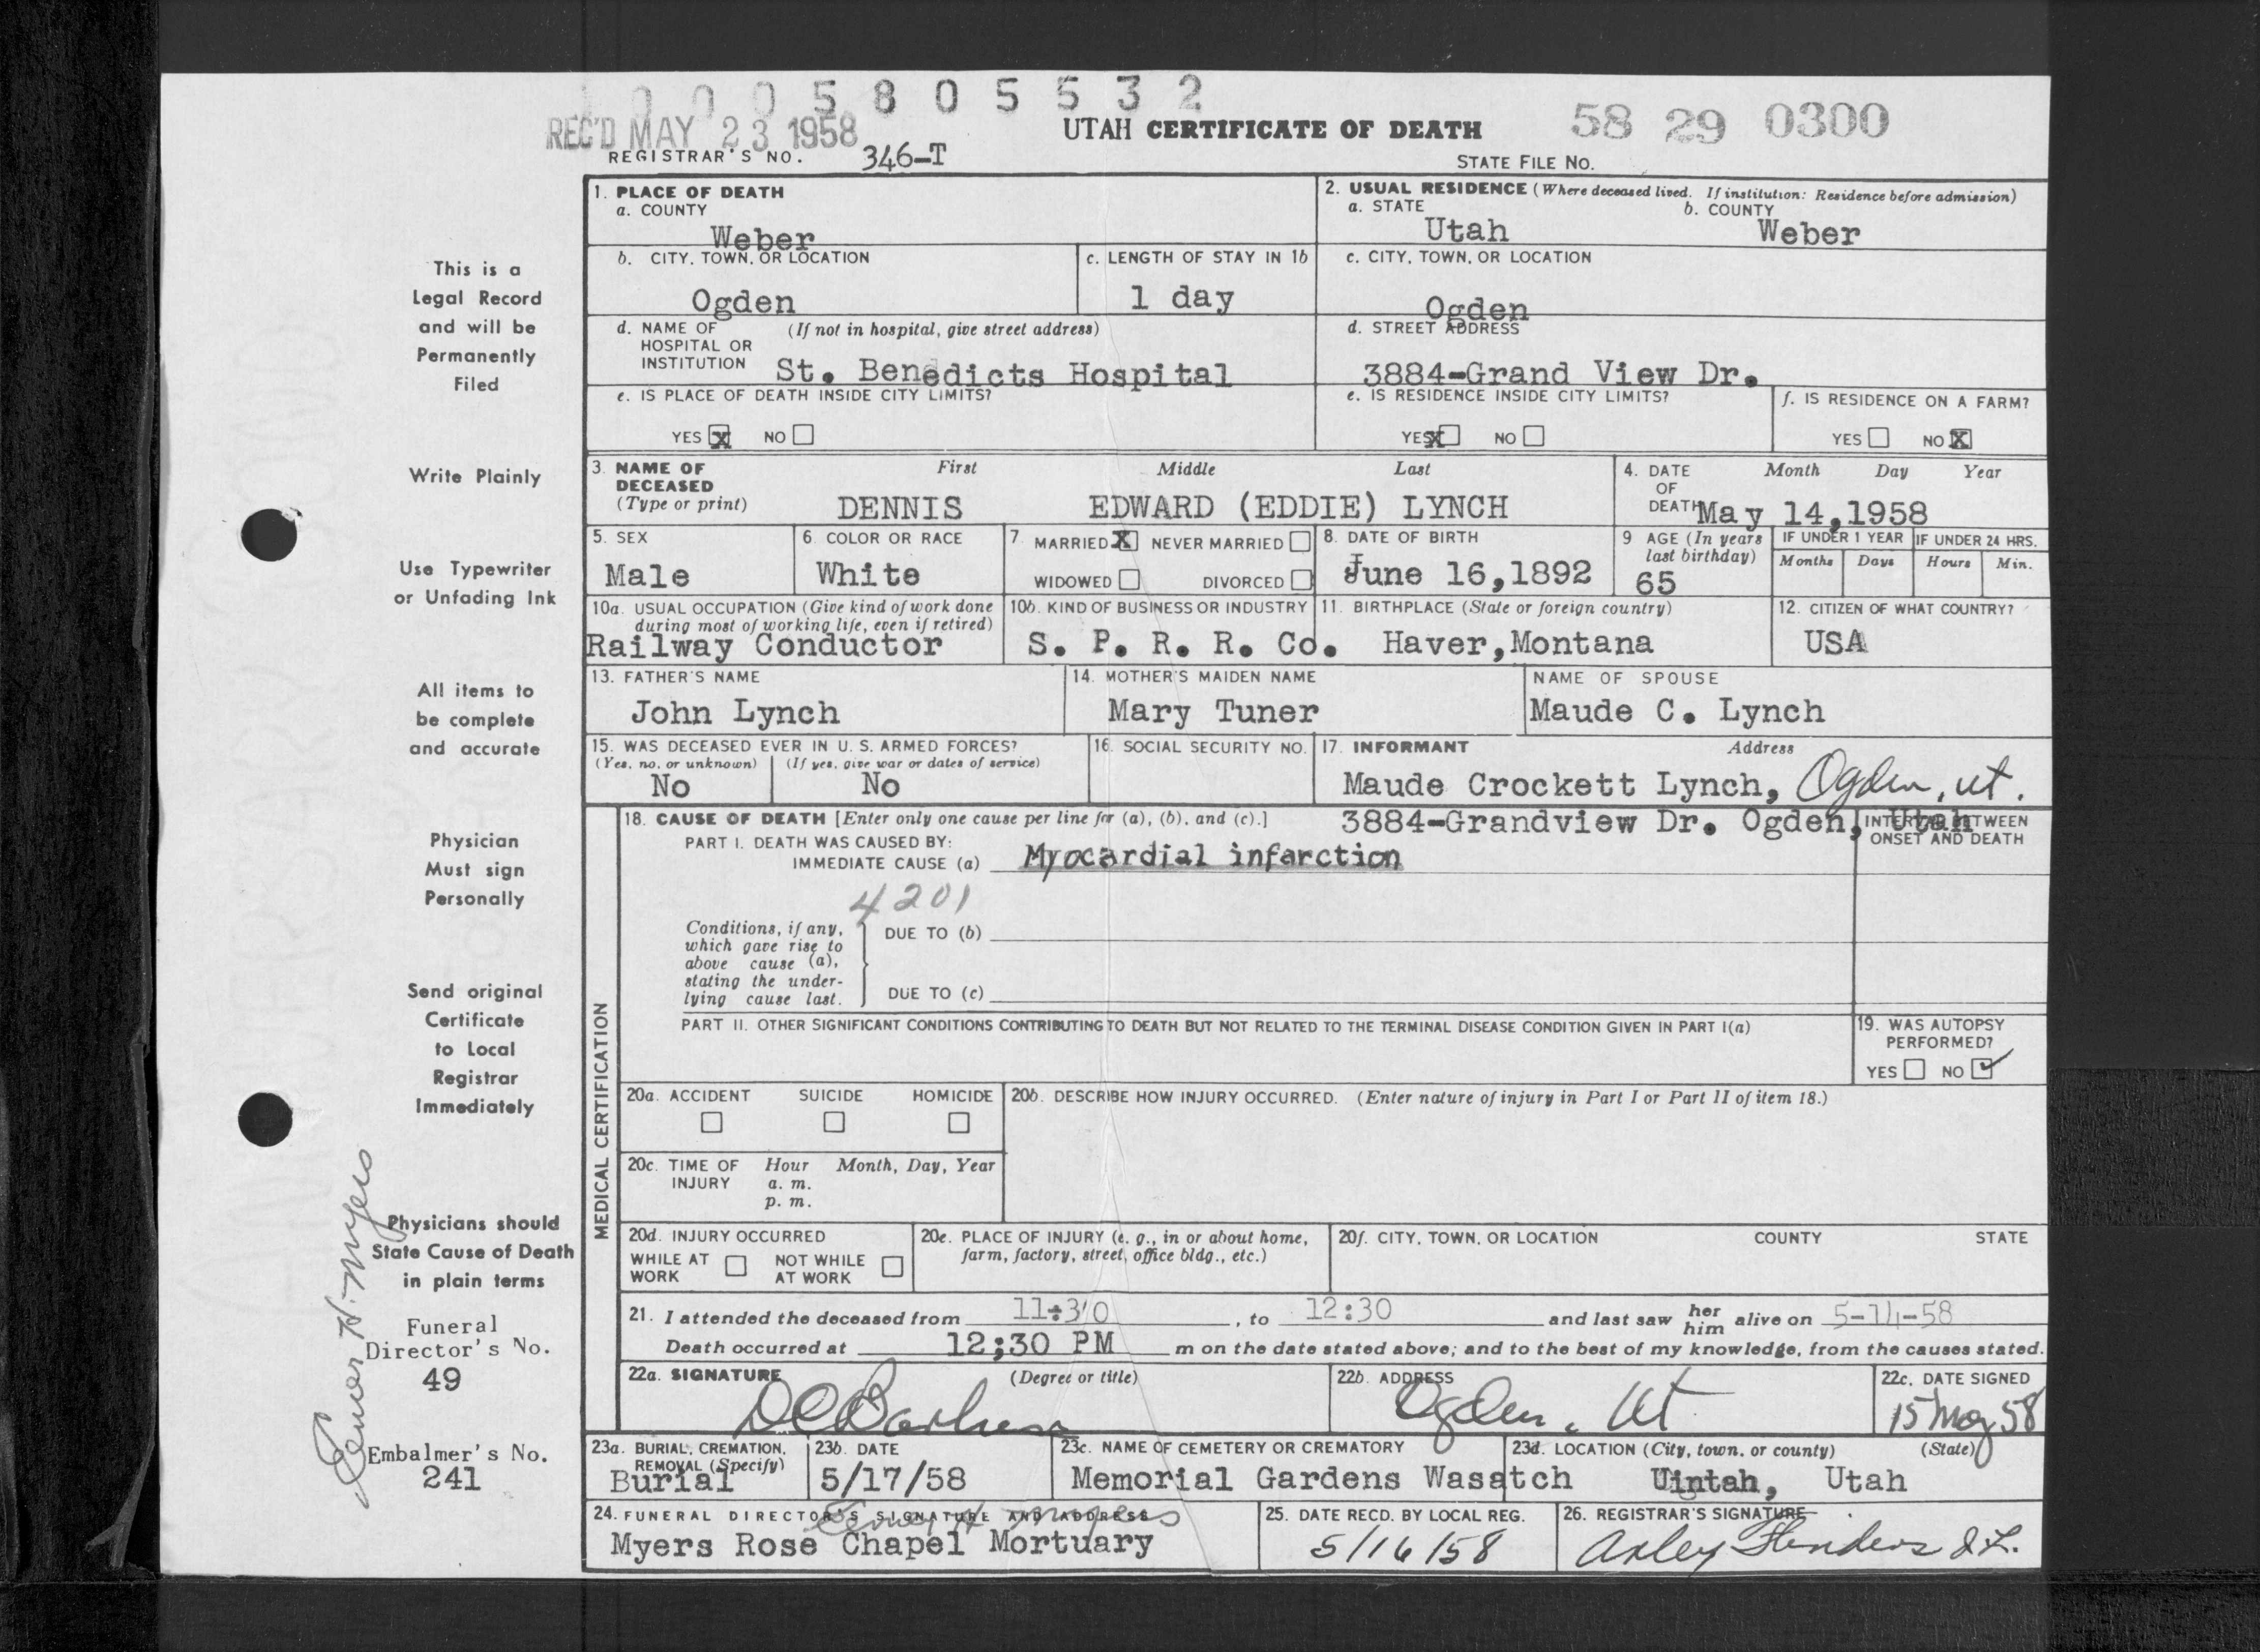 0 0 0 5 8 0 5 5 3 2
REC'D MAY 23 1958
UTAH CERTIFICATE OF DEATH
58 29 0300
REGISTRAR'S NO. 346-T
STATE FILE NO.
1. PLACE OF DEATH
a. COUNTY
Weber
2. USUAL RESIDENCE (Where deceased lived. If institution: Residence before admission)
a. STATE
Utah
b. COUNTY
Weber
b. CITY, TOWN, OR LOCATION
Ogden
c. LENGTH OF STAY IN 1b
1 day
c. CITY, TOWN, OR LOCATION
Ogden
d. NAME OF (If not in hospital, give street address)
HOSPITAL OR
INSTITUTION St. Benedicts Hospital
d. STREET ADDRESS
3884-Grand View Dr.
e. IS PLACE OF DEATH INSIDE CITY LIMITS?
YES X NO
e. IS RESIDENCE INSIDE CITY LIMITS?
YES X NO
f. IS RESIDENCE ON A FARM?
YES NO X
3. NAME OF DECEASED
(Type or print)
First Middle Last
DENNIS EDWARD (EDDIE) LYNCH
4. DATE OF DEATH
Month Day Year
May 14,1958
5. SEX
Male
6. COLOR OR RACE
White
7. MARRIED X NEVER MARRIED
WIDOWED DIVORCED
8. DATE OF BIRTH
June 16,1892
9 AGE (In years
last birthday)
65
IF UNDER 1 YEAR
Months Days
IF UNDER 24 HRS.
Hours Min.
10a. USUAL OCCUPATION (Give kind of work done
during most of working life, even if retired)
Railway Conductor
10b. KIND OF BUSINESS OR INDUSTRY
S. P. R. R. Co.
11. BIRTHPLACE (State or foreign country)
Haver,Montana
12. CITIZEN OF WHAT COUNTRY?
USA
13. FATHER'S NAME
John Lynch
14. MOTHER'S MAIDEN NAME
Mary Tuner
NAME OF SPOUSE
Maude C. Lynch
15. WAS DECEASED EVER IN U. S. ARMED FORCES?
(Yes, no, or unknown) (If yes, give war or dates of service)
No No
16. SOCIAL SECURITY NO.
17. INFORMANT Address
Maude Crockett Lynch, Ogden, ut.
3884-Grandview Dr. Ogden, Utah
MEDICAL CERTIFICATION
18. CAUSE OF DEATH [Enter only one cause per line for (a), (b), and (c).]
INTERVAL BETWEEN
ONSET AND DEATH
PART I. DEATH WAS CAUSED BY:
IMMEDIATE CAUSE (a) Myocardial infarction
4201
Conditions, if any,
which gave rise to
above cause (a),
stating the under-
lying cause last.
DUE TO (b)
DUE TO (c)
PART II. OTHER SIGNIFICANT CONDITIONS CONTRIBUTING TO DEATH BUT NOT RELATED TO THE TERMINAL DISEASE CONDITION GIVEN IN PART I(a)
19. WAS AUTOPSY
PERFORMED?
YES NO ✓
20a. ACCIDENT SUICIDE HOMICIDE
20b. DESCRIBE HOW INJURY OCCURRED. (Enter nature of injury in Part I or Part II of item 18.)
20c. TIME OF INJURY
Hour Month, Day, Year
a. m.
p. m.
20d. INJURY OCCURRED
WHILE AT WORK NOT WHILE AT WORK
20e. PLACE OF INJURY (e. g., in or about home,
farm, factory, street, office bldg., etc.)
20f. CITY, TOWN, OR LOCATION COUNTY STATE
21. I attended the deceased from 11:30, to 12:30 and last saw her him alive on 5-14-58
Death occurred at 12:30 PM m on the date stated above; and to the best of my knowledge, from the causes stated.
22a. SIGNATURE (Degree or title)
22b. ADDRESS
Ogden, Ut
22c. DATE SIGNED
15 May 58
23a. BURIAL, CREMATION,
REMOVAL (Specify)
Burial
23b. DATE
5/17/58
23c. NAME OF CEMETERY OR CREMATORY
Memorial Gardens Wasatch
23d. LOCATION (City, town, or county) (State)
Uintah, Utah
24. FUNERAL DIRECTOR'S SIGNATURE AND ADDRESS
Myers Rose Chapel Mortuary
25. DATE RECD. BY LOCAL REG.
5/16/58
26. REGISTRAR'S SIGNATURE
This is a
Legal Record
and will be
Permanently
Filed
Write Plainly
Use Typewriter
or Unfading Ink
All items to
be complete
and accurate
Physician
Must sign
Personally
Send original
Certificate
to Local
Registrar
Immediately
Physicians should
State Cause of Death
in plain terms
Funeral
Director's No.
49
Embalmer's No.
241